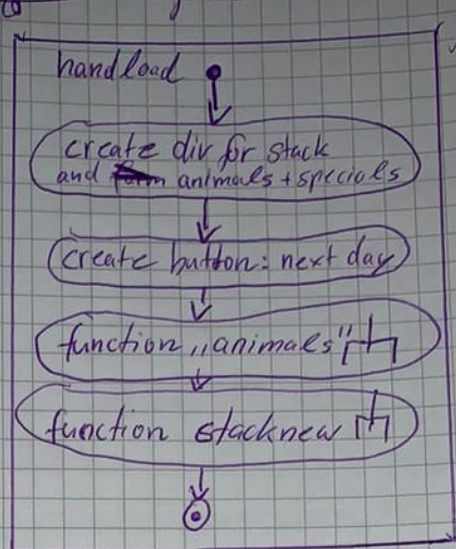 handload
create div for stack
and animals + specials
create button: next day
function „animals"
function stacknew